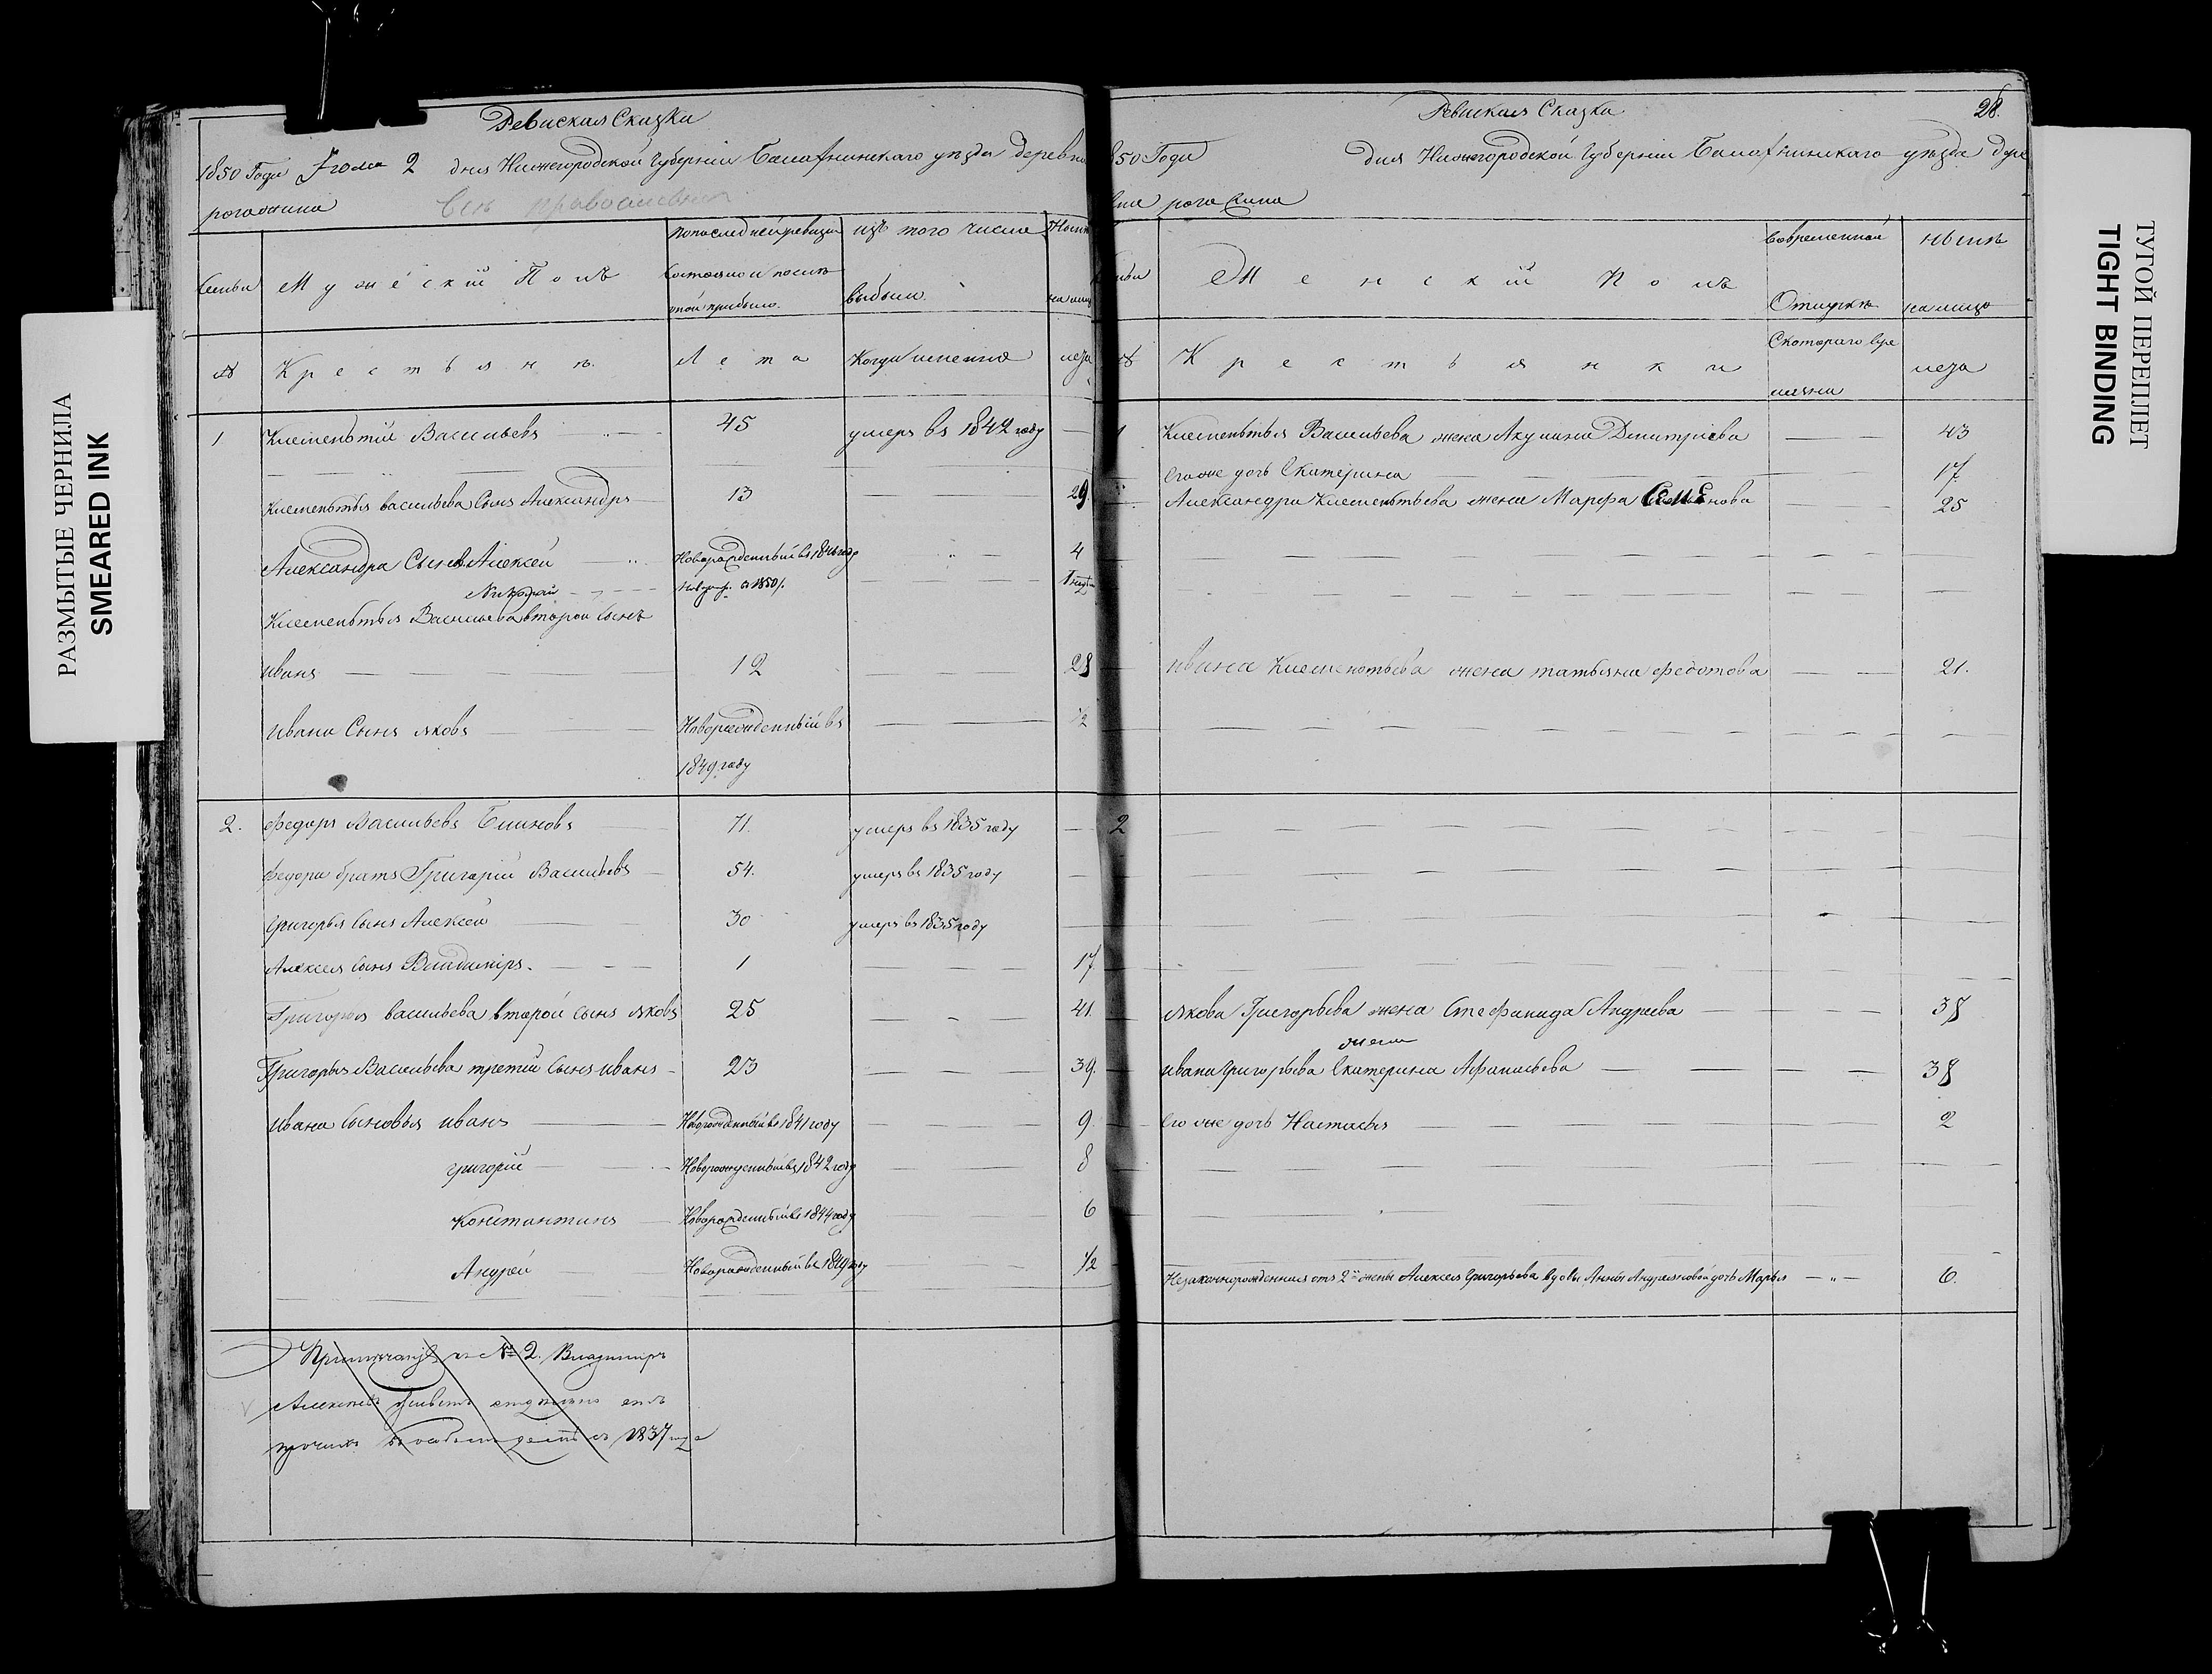 РАЗМЫТЫЕ ЧЕРНИЛА
SMEARED INK
Ревиская Сказка
1850 Года Июля 2 дня Нижегородской Губернии Балахнинскаго уезда деревни
рогожина Все православные
Семьи
Мужескій Полъ
По последней ревизіи состояло и после оной прибыло.
изъ того числа выбыло.
Ныне на лицо
№
Крестьяне.
Лета
Когда именно
лета
1 Клементій Васильевъ 45 умеръ въ 1842 году
Клементья васильева Сынъ Александръ 13 29
Александра Сынъ Алексей Новорожденный въ 1846 году 4
Николай Новорож. въ 1850 г.
Клементья Васильева второй сынъ
иванъ 12 28
ивана Сынъ яковъ Новорожденный въ 1/2
1849 году
2. Федоръ Васильевъ Блиновъ 71. умеръ въ 1835 году
федора братъ Григорій Васильевъ 54. умеръ въ 1835 году
григорья Сынъ Алексей 30 умеръ въ 1835 году
Алексея сынъ Владимiръ. 1 17
Григорья васильева второй сынъ яковъ 25 41.
Григорья Васильева третій сынъ иванъ 23 39.
ивана сыновья иванъ Новорожденный въ 1841 году 9.
григорій Новорожденный въ 1842 году 8
Константинъ Новорожденный въ 1844 году 6
Андрей Новорожденный въ 1849 году 1/2
Примечаніе къ № 2. Владимиръ
Алексеевъ живетъ отдельно отъ
прочихъ съ 1837 года
Ревиская Сказка 28.
850 Года дня Нижегородской Губернии Балахнинскаго уезда дере
вни рогожина
Женскій Полъ
Во временной Отлучке
ныне на лицо
№
Крестьянки
С котораго времяни
лета
1 Клементья Васильева жена Акулина Дмитріева 43
Его же дочь Екатерина 17.
Александра Клементьева жена Марфа Семенова 25
ивана Клементьева жена татьяна федотова 21.
2
якова Григорьева жена Степанида Андреева 38
жена
ивана григорьева Екатерина Афанасьева 38
Его же дочь Настасья 2
Незаконнорожденная отъ 2й жены Алексея Григорьева вдовы Анны Андреяновой дочь Марья 6.
ТУГОЙ ПЕРЕПЛЕТ
TIGHT BINDING